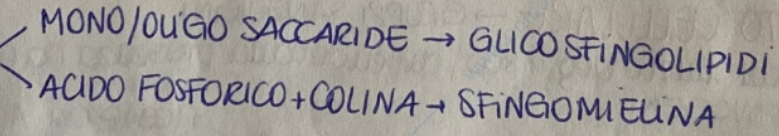 MONO/OLIGO SACCARIDE → GLICOSFINGOLIPIDI
ACIDO FOSFORICO+COLINA → SFINGOMIELINA